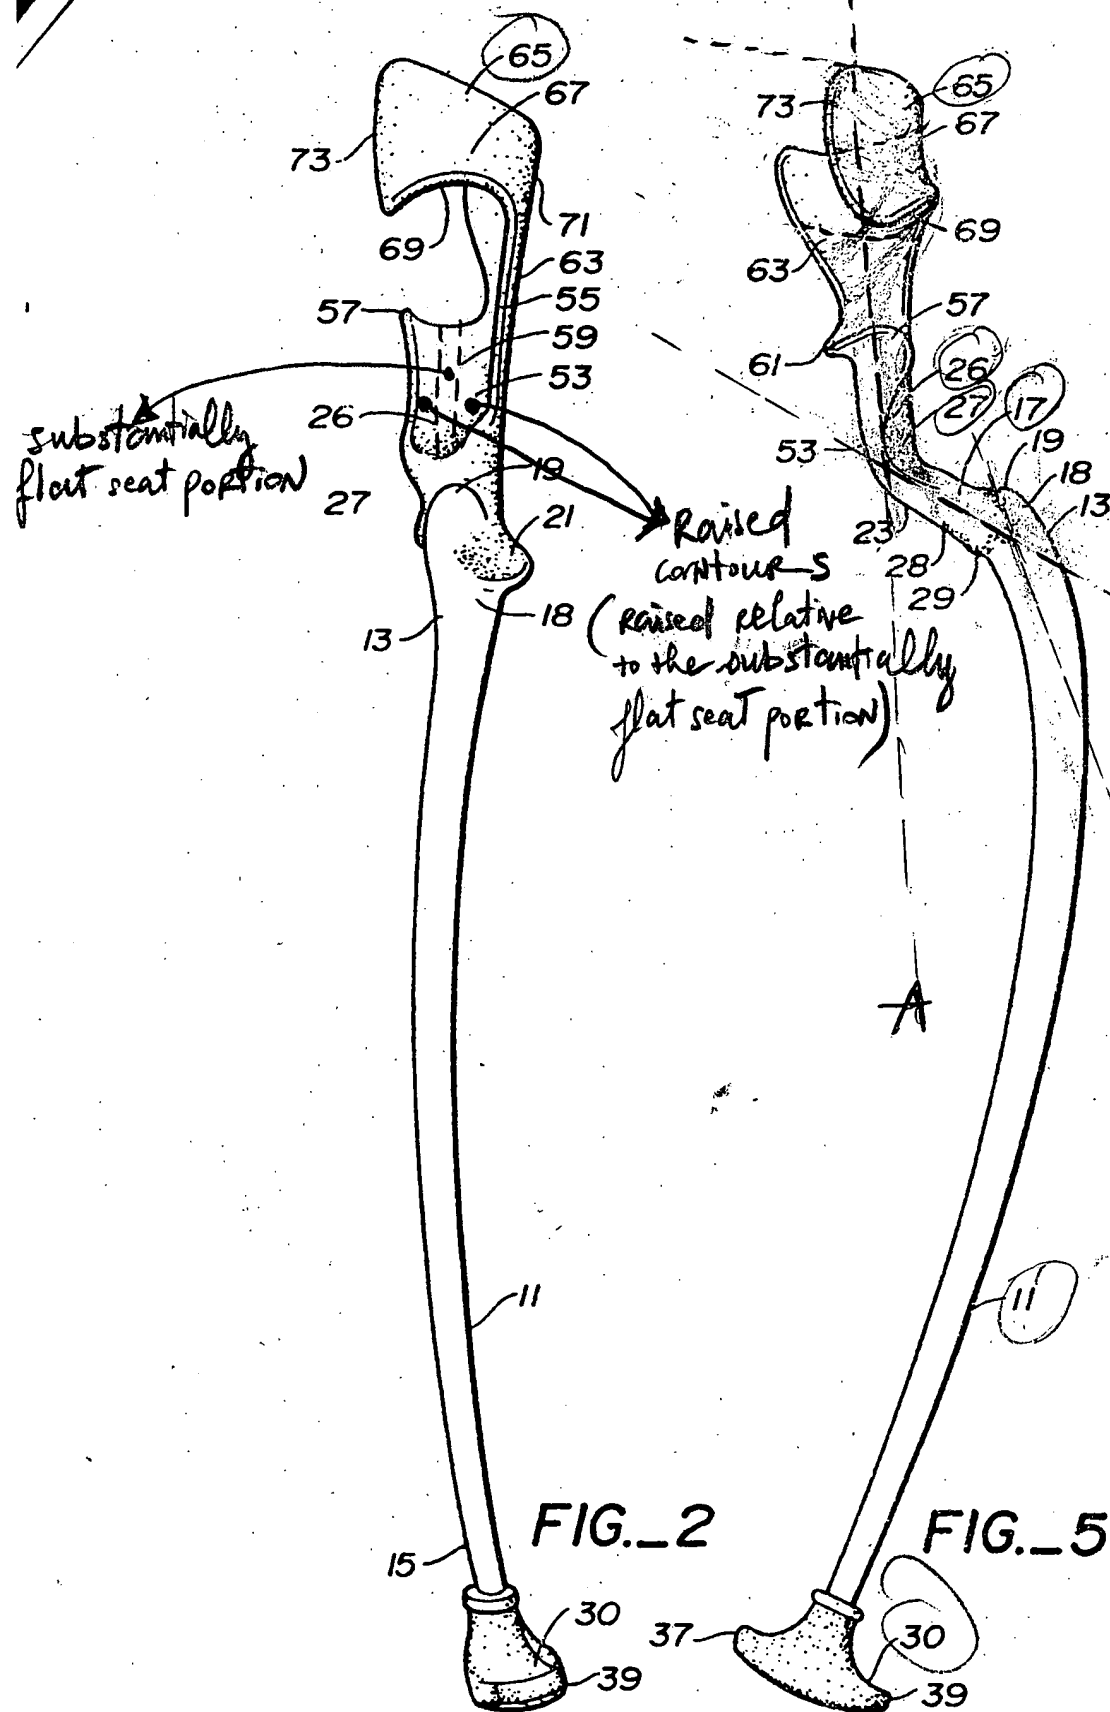 65
67
73
71
69
63
55
57
59
53
26
substantially
flat seat portion
27
19
21
18
13
Raised
contour-s
(raised relative
to the substantially
flat seat portion)
11
15
30
39
FIG._2
65
73
67
69
63
57
61
26
27
17
19
18
13
53
23
28
29
A
11
37
30
39
FIG._5